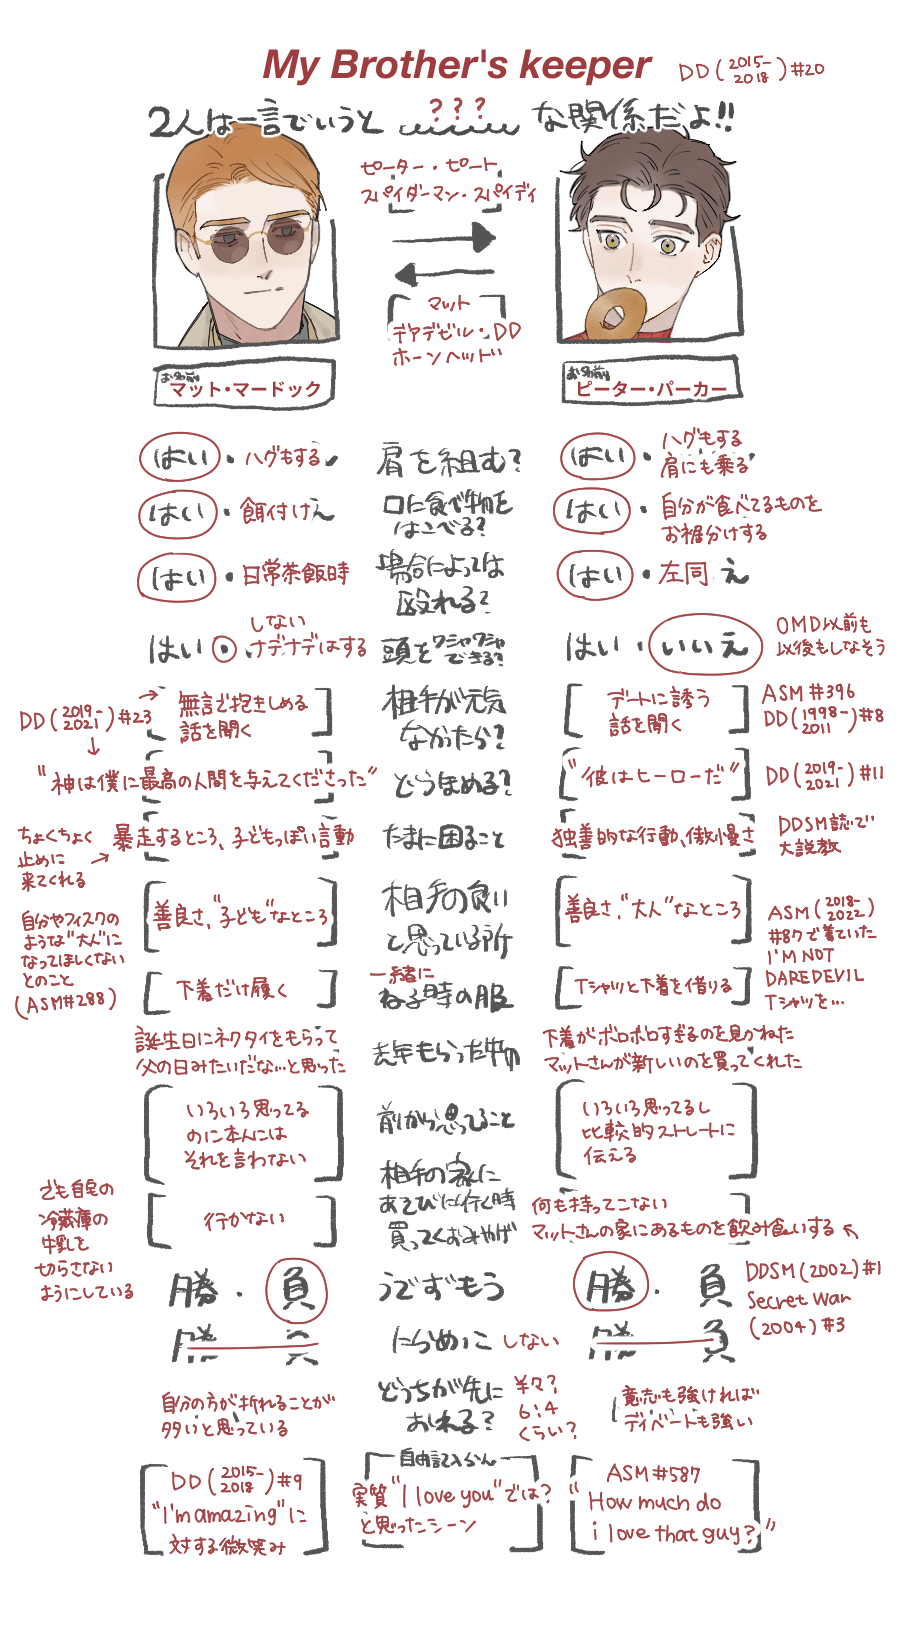 My Brother's keeper
DD (2015-2018) #20
2人は一言でいうと ??? な関係だよ!!
ピーター・ピート
スパイダーマン・スパイディ
マット
デアデビル・DD
ホーンヘッド
お名前
マット・マードック
お名前
ピーター・パーカー
はい・ハグもする
肩を組む?
はい・ハグもする
肩にも乗る
はい・餌付け え
口に食べ物を
はこべる?
はい・自分が食べてるものを
お裾分けする
はい・日常茶飯時
場合によっては
殴れる?
はい・左同 え
はい・しない
ナデナデはする
頭をワシャワシャ
できる?
はい・いいえ
OMD以前も
以後もしなそう
DD (2019-2021) #23
無言で抱きしめる
話を聞く
相手が元気
なかったら?
デートに誘う
話を聞く
ASM #396
DD (1998-2011) #8
"神は僕に最高の人間を与えてくださった"
どうほめる?
"彼はヒーローだ"
DD (2019-2021) #11
ちょくちょく
止めに
来てくれる
暴走するところ、子どもっぽい言動
たまに困ること
独善的な行動、傲慢さ
DDSM読んで
大説教
自分やフィスクの
ような"大人"に
なってほしくない
とのこと
(ASM#288)
善良さ、"子ども"なところ
相手の良い
と思っている所
善良さ、"大人"なところ
ASM (2018-2022)
#87で着ていた
I'M NOT
DAREDEVIL
Tシャツを…
下着だけ履く
一緒に
ねる時の服
Tシャツと下着を借りる
誕生日にネクタイをもらって
父の日みたいだな…と思った
去年もらった物
下着がボロボロすぎるのを見かねた
マットさんが新しいのを買ってくれた
いろいろ思ってる
のに本人には
それを言わない
前から思ってること
いろいろ思ってるし
比較的ストレートに
伝える
でも自宅の
冷蔵庫の
牛乳を
切らさない
ようにしている
行かない
相手の家に
あそびに行く時
買ってくおみやげ
何も持ってこない
マットさんの家にあるものを飲み食いする
勝・負
うでずもう
勝・負
DDSM (2002) #1
Secret War
(2004) #3
勝 負
にらめっこ しない
勝 負
自分の方が折れることが
多いと思っている
どっちが先に
おれる?
半々?
6:4
くらい?
意志も強ければ
ディベートも強い
DD (2015-2018) #9
"I'm amazing"に
対する微笑み
自由記入らん
実質"I love you"では?
と思ったシーン
ASM #587
"How much do
i love that guy?"